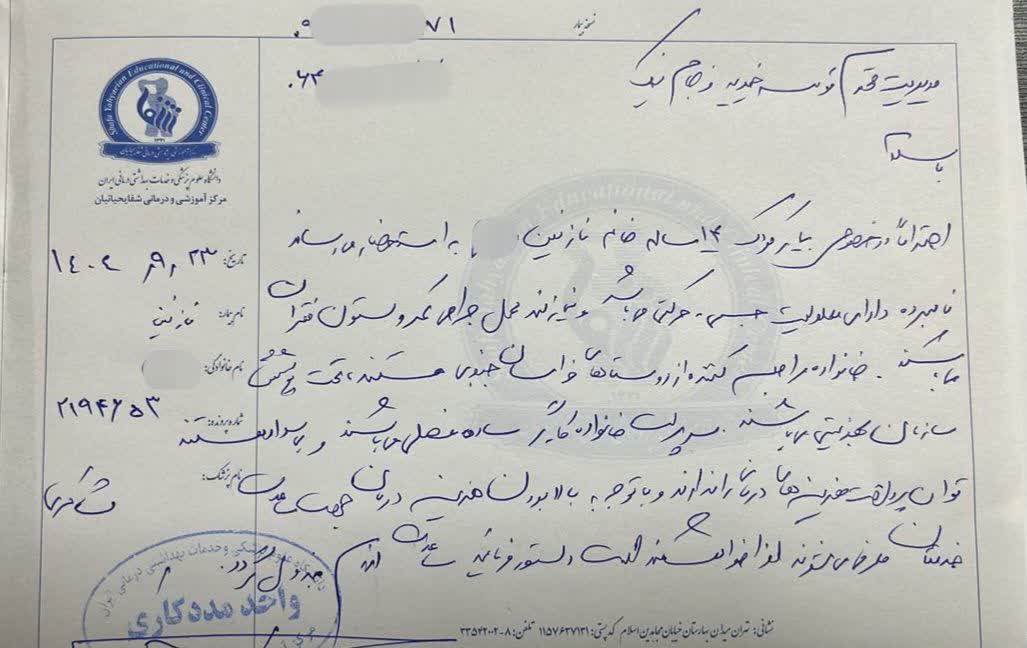 نسخه بیمار
۰۹ ۷۱
۰۶۳
Shafa Yahyaeian Educational and Clinical Center
۱۳۳۱
دانشگاه علوم پزشکی و خدمات بهداشتی درمانی ایران
مرکز آموزشی و درمانی شفایحیائیان
مدیریت محترم موسسه خیریه فرجام نیک
باسلام
احتراماً در خصوص بیمار کودک ۱۴ ساله خانم نازنین به استحضار می رساند
نامبرده دارای معلولیت جسمی - حرکتی می باشد و نیازمند عمل جراحی کمر و ستون فقرات
می باشند . خانواده مراجعه کننده از روستاهای خراسان جنوبی هستند ، تحت پوشش
سازمان بهزیستی می باشند . سرپرست خانواده کارگر ساده فصلی می باشند و بی سواد هستند
توان پرداخت هزینه های درمان را ندارند و با توجه به بالا بودن هزینه درمان جهت مساعدت
خدمتتان معرفی می شوند لذا خواهشمند است دستور فرمائید مساعدت لازم مبذول گردد.
تاریخ: ۱۴۰۲٫۹٫۲۳
نام بیمار: نازنین
نام خانوادگی:
شماره پرونده: ۲۱۹۴۶۵۳
نام پزشک:
دانشگاه علوم پزشکی و خدمات بهداشتی درمانی ایران
واحد مددکاری
نشانی: تهران میدان بهارستان خیابان مجاهدین اسلام کد پستی: ۱۱۵۷۶۳۷۱۳۱ تلفن: ۸-۳۳۵۴۲۰۰۲